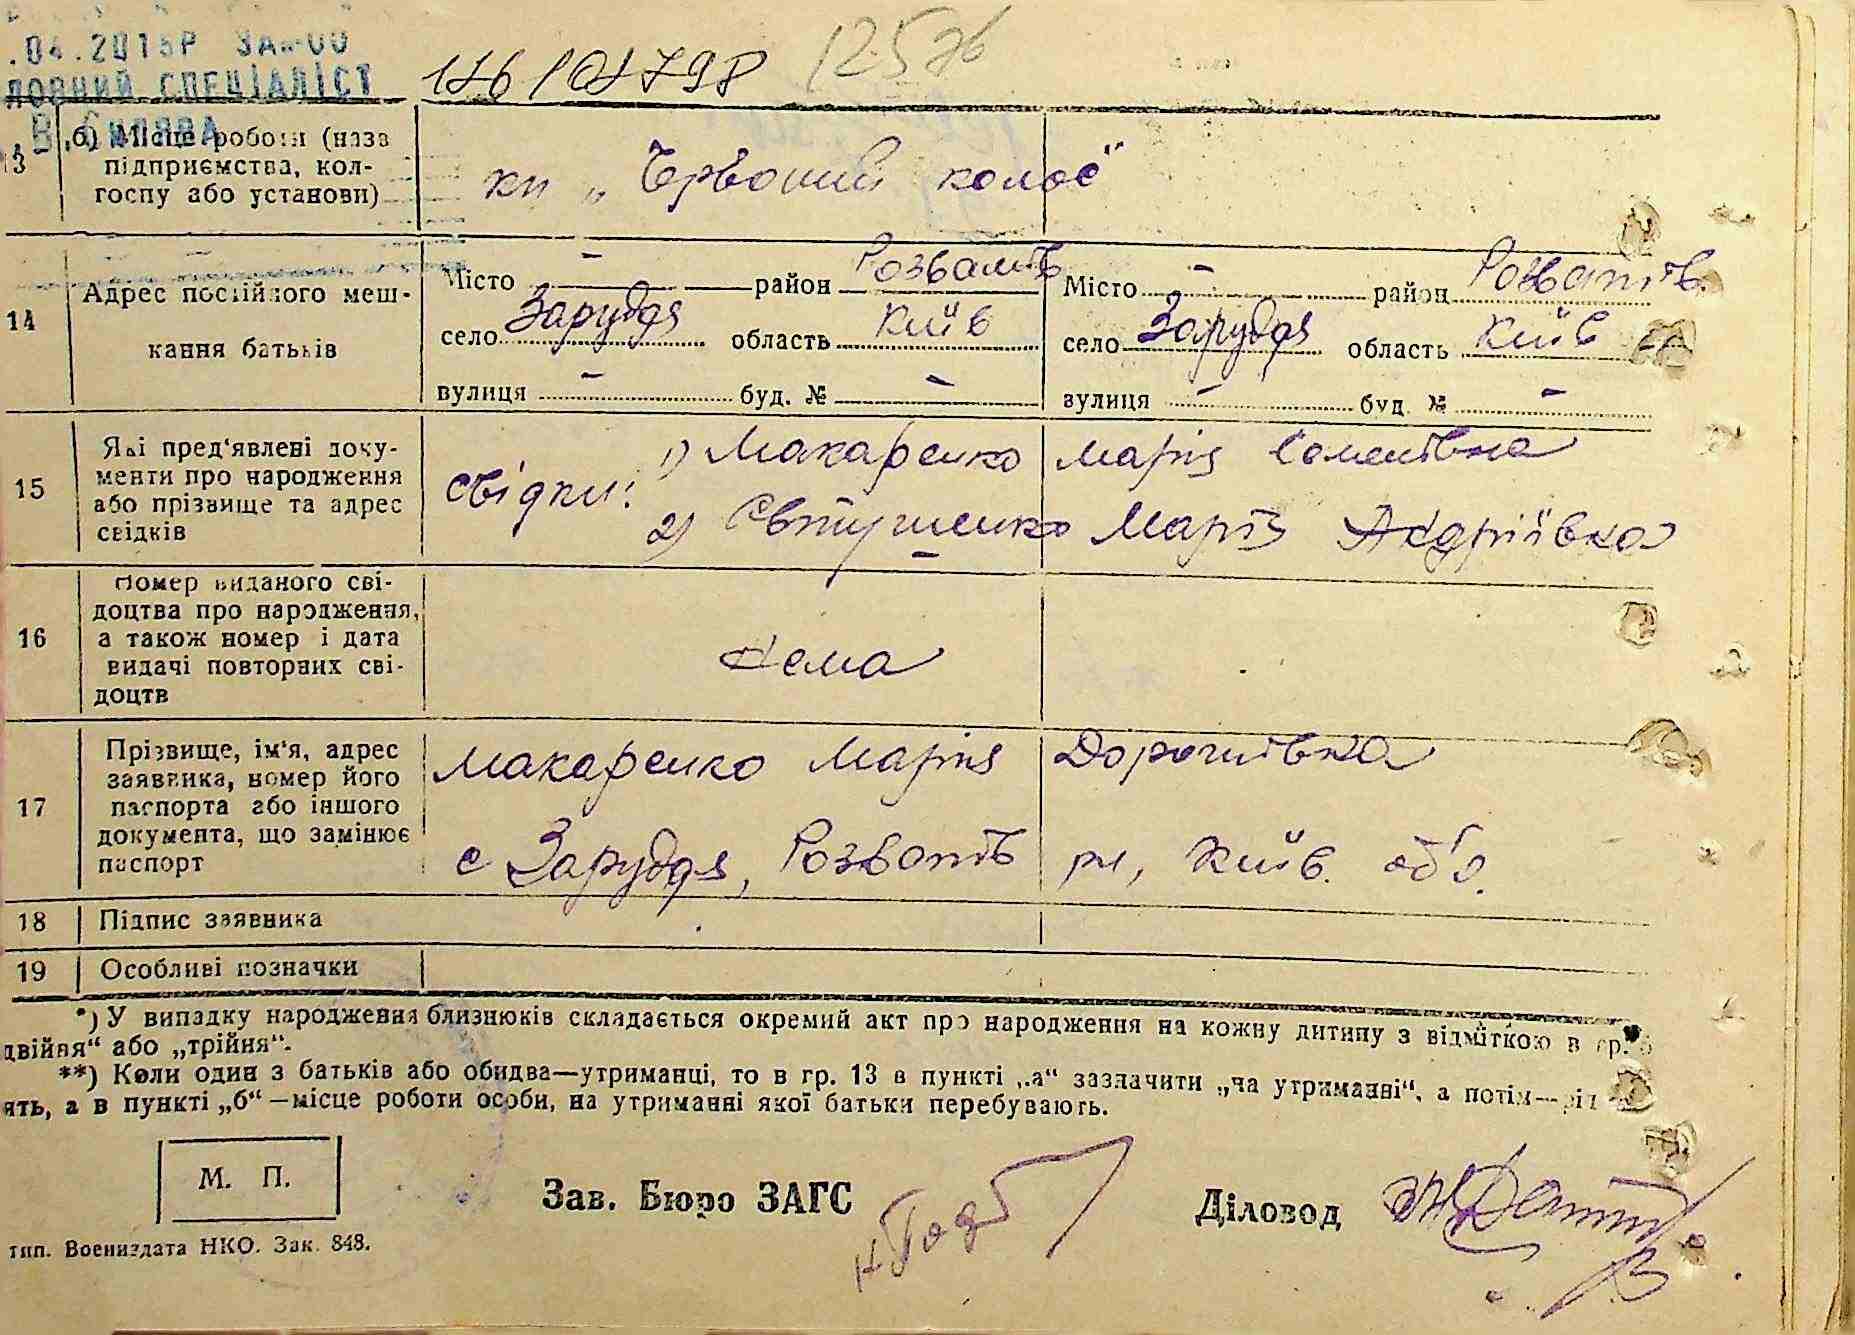 .04.2015Р
ЛОВНИЙ СПЕЦІАЛІСТ
13 б) Місце роботи (назва
підприємства, кол-
госпу або установи)
кп „Червоний колос“
14 Адрес постійного меш-
кання батьків
Місто — район Розважів Місто — район Розважів
село Заруддя область Київ село Заруддя область Київ
вулиця — буд. № — вулиця — буд. № —
15 Які пред'явлені доку-
менти про народження
або прізвище та адрес
свідків
свідки: 1) Макаренко Марія Семенівна
2) Євтушенко Марія Андріївна
16 Номер виданого сві-
доцтва про народження,
а також номер і дата
видачі повторних сві-
доцтв
нема
17 Прізвище, ім'я, адрес
заявника, номер його
паспорта або іншого
документа, що замінює
паспорт
Макаренко Марія
с Заруддя, Розважів рн, Київ. обл.
18 Підпис заявника
19 Особливі позначки
*) У випадку народження близнюків складається окремий акт про народження на кожну дитину з відміткою в гр. 6
двійня“ або „трійня“.
**) Коли один з батьків або обидва—утриманці, то в гр. 13 в пункті „а“ зазначити „на утриманні“, а потім—рід
ять, а в пункті „б“—місце роботи особи, на утриманні якої батьки перебувають.
М. П.
Зав. Бюро ЗАГС
Діловод
тип. Воениздата НКО. Зак. 848.